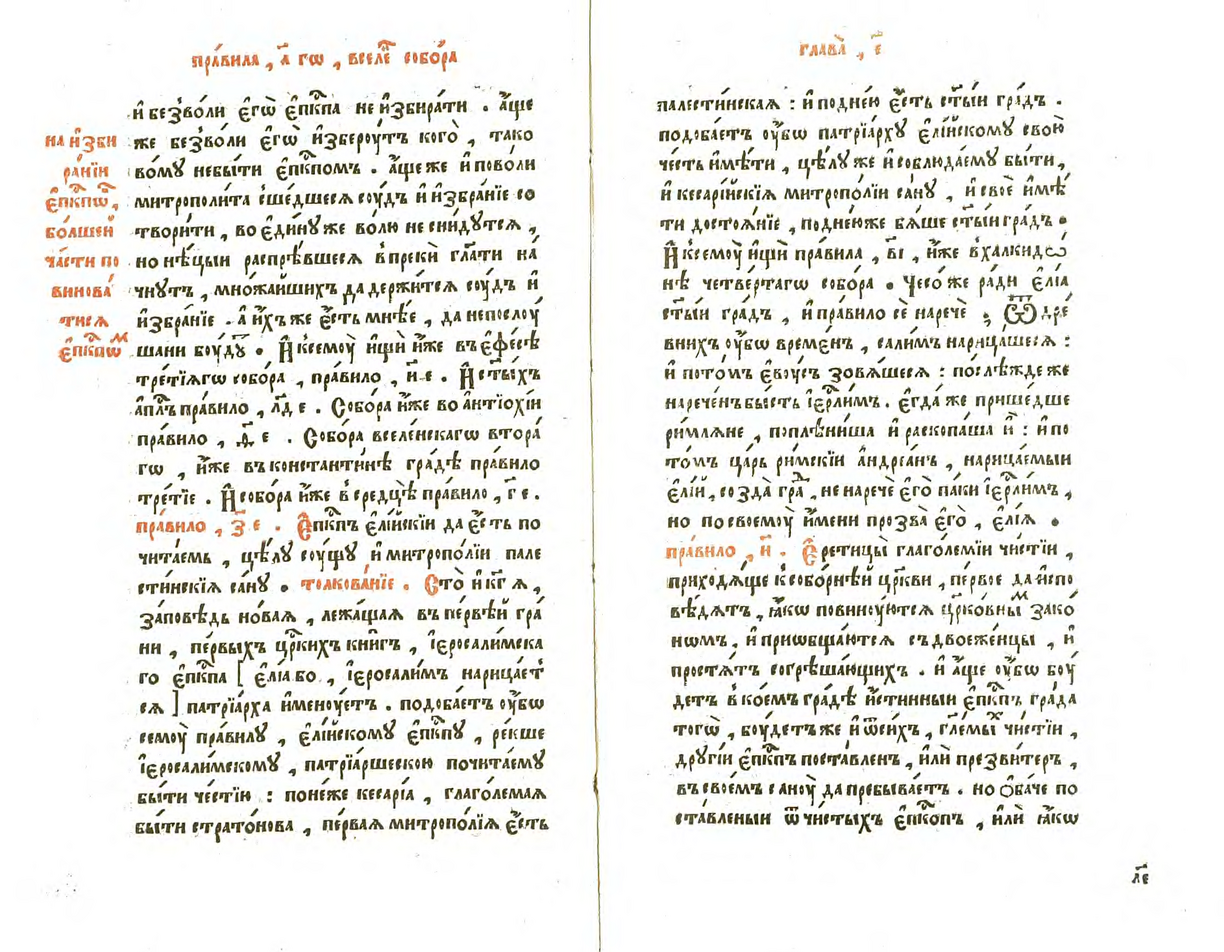 пра́вила , а҃ гѡ , вселе́ⷩ собо́ра
и҆ без̾во́ли є҆гѡ̀ є҆пⷭ҇кпа не и҆збира́ти . а҆́ще
же без̾во́ли є҆гѡ̀ и҆зберꙋ́тъ кого̀ , тако
во́мꙋ небы́ти є҆пⷭ҇кпомъ . а҆́щеже и҆ пово́ли
митрополи́та сше́дшеся сꙋ́дъ и҆ и҆збра́нїе со
твори́ти , во є҆ди́нꙋ же во́лю не сни́дꙋтся ,
но нѣ́цыи распрѣ́вшеся в̾прекѝ гл҃ати на
чнꙋ́тъ , мно́жайшихъ да держи́тся сꙋ́дъ и҆
и҆збра́нїе . а и҆́хъже є҆́сть мнѣ́е , да непослꙋ́
шани бꙋ́дꙋ . И҆ ксемꙋ̀ и҆щѝ и҆́же въ є҆фе́сѣ
тре́тїягѡ собо́ра , пра́вило , и҃ е . И҆ ст҃ы́хъ
а҆пⷭ҇лъ пра́вило , л҃д е . Собо́ра и҆́же во а҆нтїо́хїи
пра́вило , д҃ , е . Собо́ра вселе́нскагѡ втора́
гѡ , и҆́же въ константи́нѣ гра́дѣ пра́вило
тре́тїе . И҆ собо́ра и҆́же в̾ средцѣ̀ пра́вило , г҃ е .
пра́вило , з҃ е . Є҆пⷭ҇кпъ є҆лі́йскїи да є҆́сть по
чита́емь , цѣ́лꙋ сꙋ́щꙋ и҆ митропо́лїи пале
сти́нскїя са́нꙋ . толкова́нїе . Сто̀ и҆ к҃г я ,
за́повѣдь но́вая , лежа́щая въ пе́рвѣй гра́
ни , пе́рвыхъ цр҃кихъ кни́гъ , і҆еросали́мска
го є҆пⷭ҇кпа [ є҆лі́а бо , і҆еросали́мъ нарица́етⸯ
ся ] патрїа́рха и҆менꙋ́етъ . подоба́етъ ᲂу҆́бѡ
семꙋ̀ пра́вилꙋ , є҆лі́йскомꙋ є҆пⷭ҇кпꙋ , ре́кше
і҆еросали́мскомꙋ , патрїа́ршескою почита́емꙋ
бы́ти че́стїю : поне́же кесарі́а , глаго́лемая
бы́ти стра́тонова , пе́рвая митропо́лїя є҆́сть
на и҆зби
ра́нїи
є҆пⷭ҇кпѡ̑ ,
бо́лшей
ча́сти по
винова́
тися
є҆пⷭ҇кпѡⷨ
глава̀ , е҃
палести́нская : и҆ подне́ю є҆́сть ст҃ы́и гра́дъ .
подоба́етъ ᲂу҆́бѡ патрїа́рхꙋ є҆лі́йскомꙋ свою̀
че́сть и҆мѣ́ти , цѣ́лꙋ же и҆ соблюда́емꙋ бы́ти ,
и҆ кесарі́йскїя митропо́лїи са́нꙋ , и҆ своѐ и҆мѣ́
ти достоѧ́нїе , поднеюже бя́ше ст҃ы́и гра́дъ .
И҆ ксемꙋ̀ и҆щѝ пра́вила , в҃і , и҆́же в̾ халкидѡ́
нѣ четве́ртагѡ собо́ра . Чесо́ же ра́ди є҆лі́а
ст҃ы́и гра́дъ , и҆ пра́вило сѐ наречѐ , Ѿ дре́
внихъ ᲂу҆́бѡ време́нъ , сали́мъ нарица́шеся :
и҆ пото́мъ є҆вꙋ́съ зовя́шеся : послѣ́жде же
нарече́нъ бы́сть і҆ерⷭ҇ли́мъ . є҆гда́ же прише́дше
ри́мляне , поплѣни́ша и҆ раскопа́ша и҆̀ : и҆ по
то́мъ ца́рь ри́мскїи а҆ндреа́нъ , нарица́емыи
є҆лі́й , созда̀ граⷣ , не наречѐ є҆го̀ па́ки і҆ерⷭ҇ли́мъ ,
но посвоемꙋ̀ и҆́мени прозва̀ є҆го̀ , є҆лі́я .
пра́вило , и҃ . Є҆ретицы̀ глаго́лемїи чи́стїи ,
приходя́ще к̾собо́рнѣй цр҃кви , пе́рвое да и҆спо
вѣ́дятъ , ꙗ҆́кѡ повинꙋ́ются цр҃ко́вныⷨ зако́
нѡмъ , и҆ приѡбща́ются съ двоеже́нцы , и҆
простя́тъ согрѣша́ющихъ . и҆ а҆́ще ᲂу҆́бѡ бꙋ́
детъ в̾ ко́емъ гра́дѣ и҆́стинныи є҆пⷭ҇кпъ гра́да
тогѡ̀ , бꙋ́детъже и҆ ѿси́хъ , гл҃емыⷯ чи́стїи ,
дрꙋгі́и є҆пⷭ҇кпъ поста́вленъ , и҆лѝ презви́теръ ,
въ свое́мъ санꙋ̀ да пребыва́етъ . но ѻ҆ба́че по
ста́вленыи ѿ чи́стыхъ є҆пⷭ҇копъ , и҆лѝ ꙗ҆́кѡ
л҃е